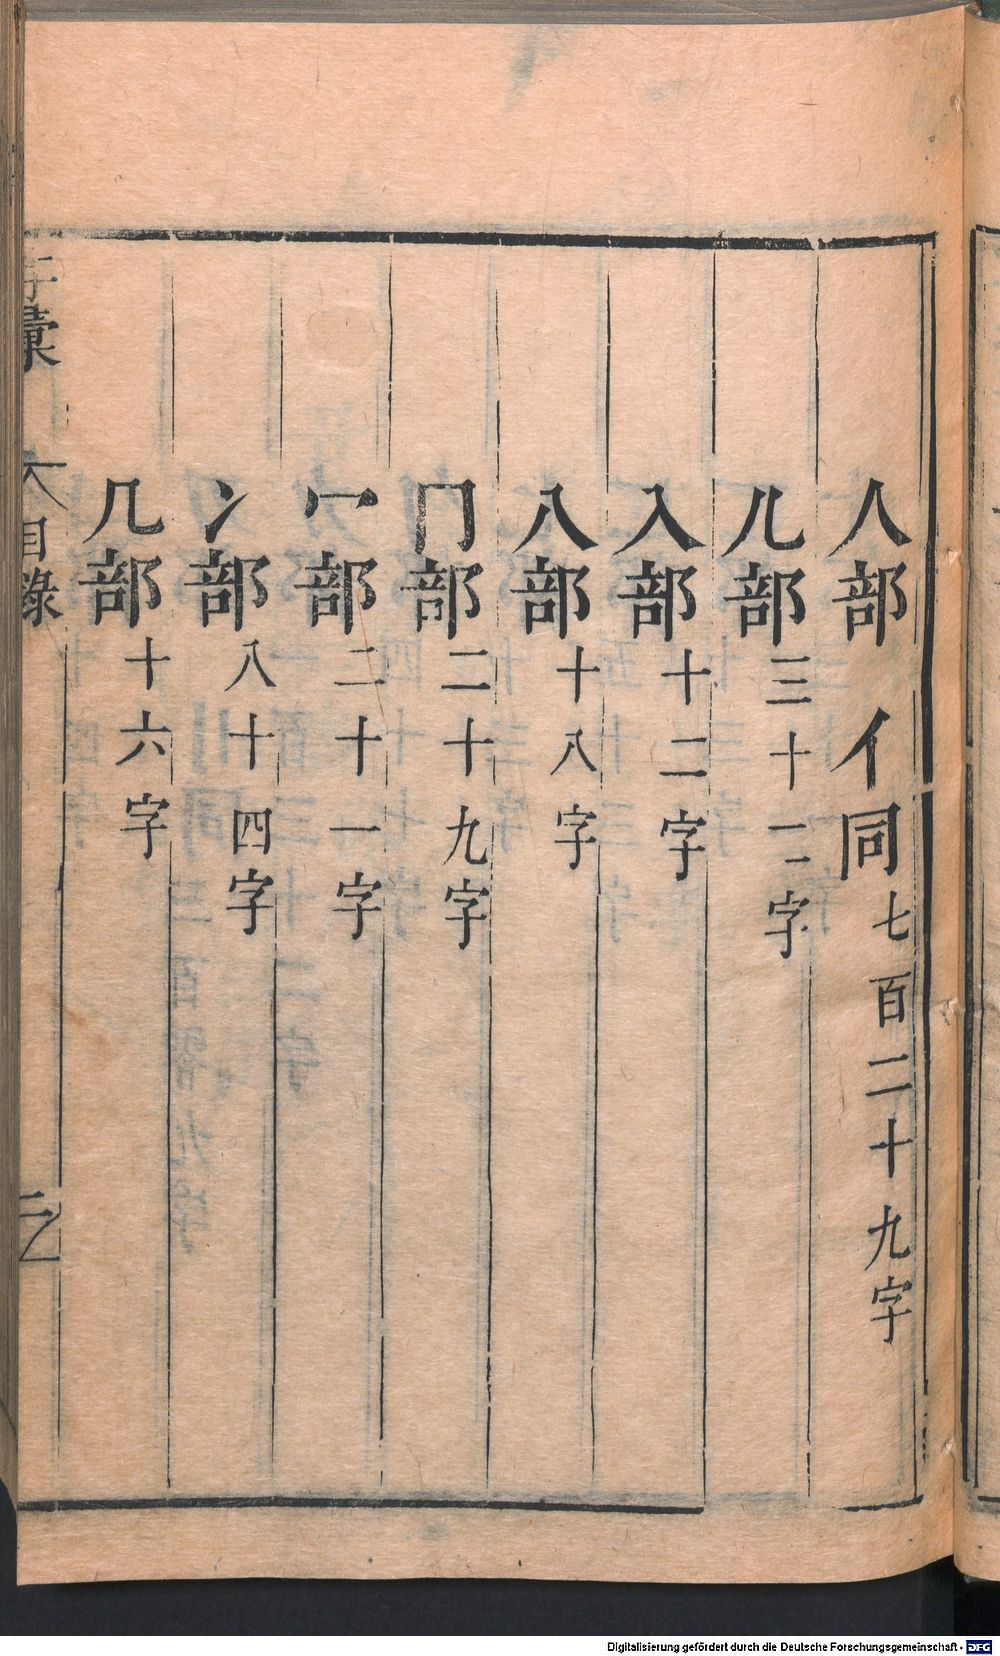 人部 亻同 七百二十九字
儿部 三十二字
入部 十二字
八部 十八字
冂部 二十九字
冖部 二十一字
冫部 八十四字
几部 十六字
字彙 目錄 二
Digitalisierung gefördert durch die Deutsche Forschungsgemeinschaft - DFG